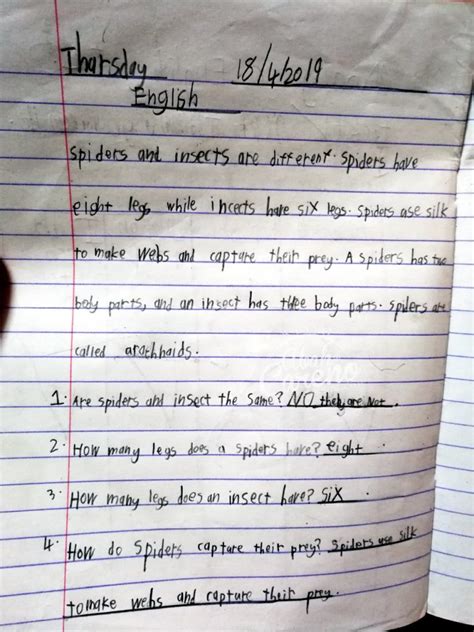 Thursday 18/4/2019
English
Spiders and insects are different. Spiders have
eight legs while incects have six legs. Spiders use silk
to make webs and capture their prey. A spiders has two
body parts, and an insect has three body parts. spiders are
called arachhaids.
1. Are spiders and insect the same? NO they are Not.
2. How many legs does a spiders have? eight
3. How many legs does an insect have? six.
4. How do spiders capture their prey? Spiders use silk
to make webs and capture their prey.